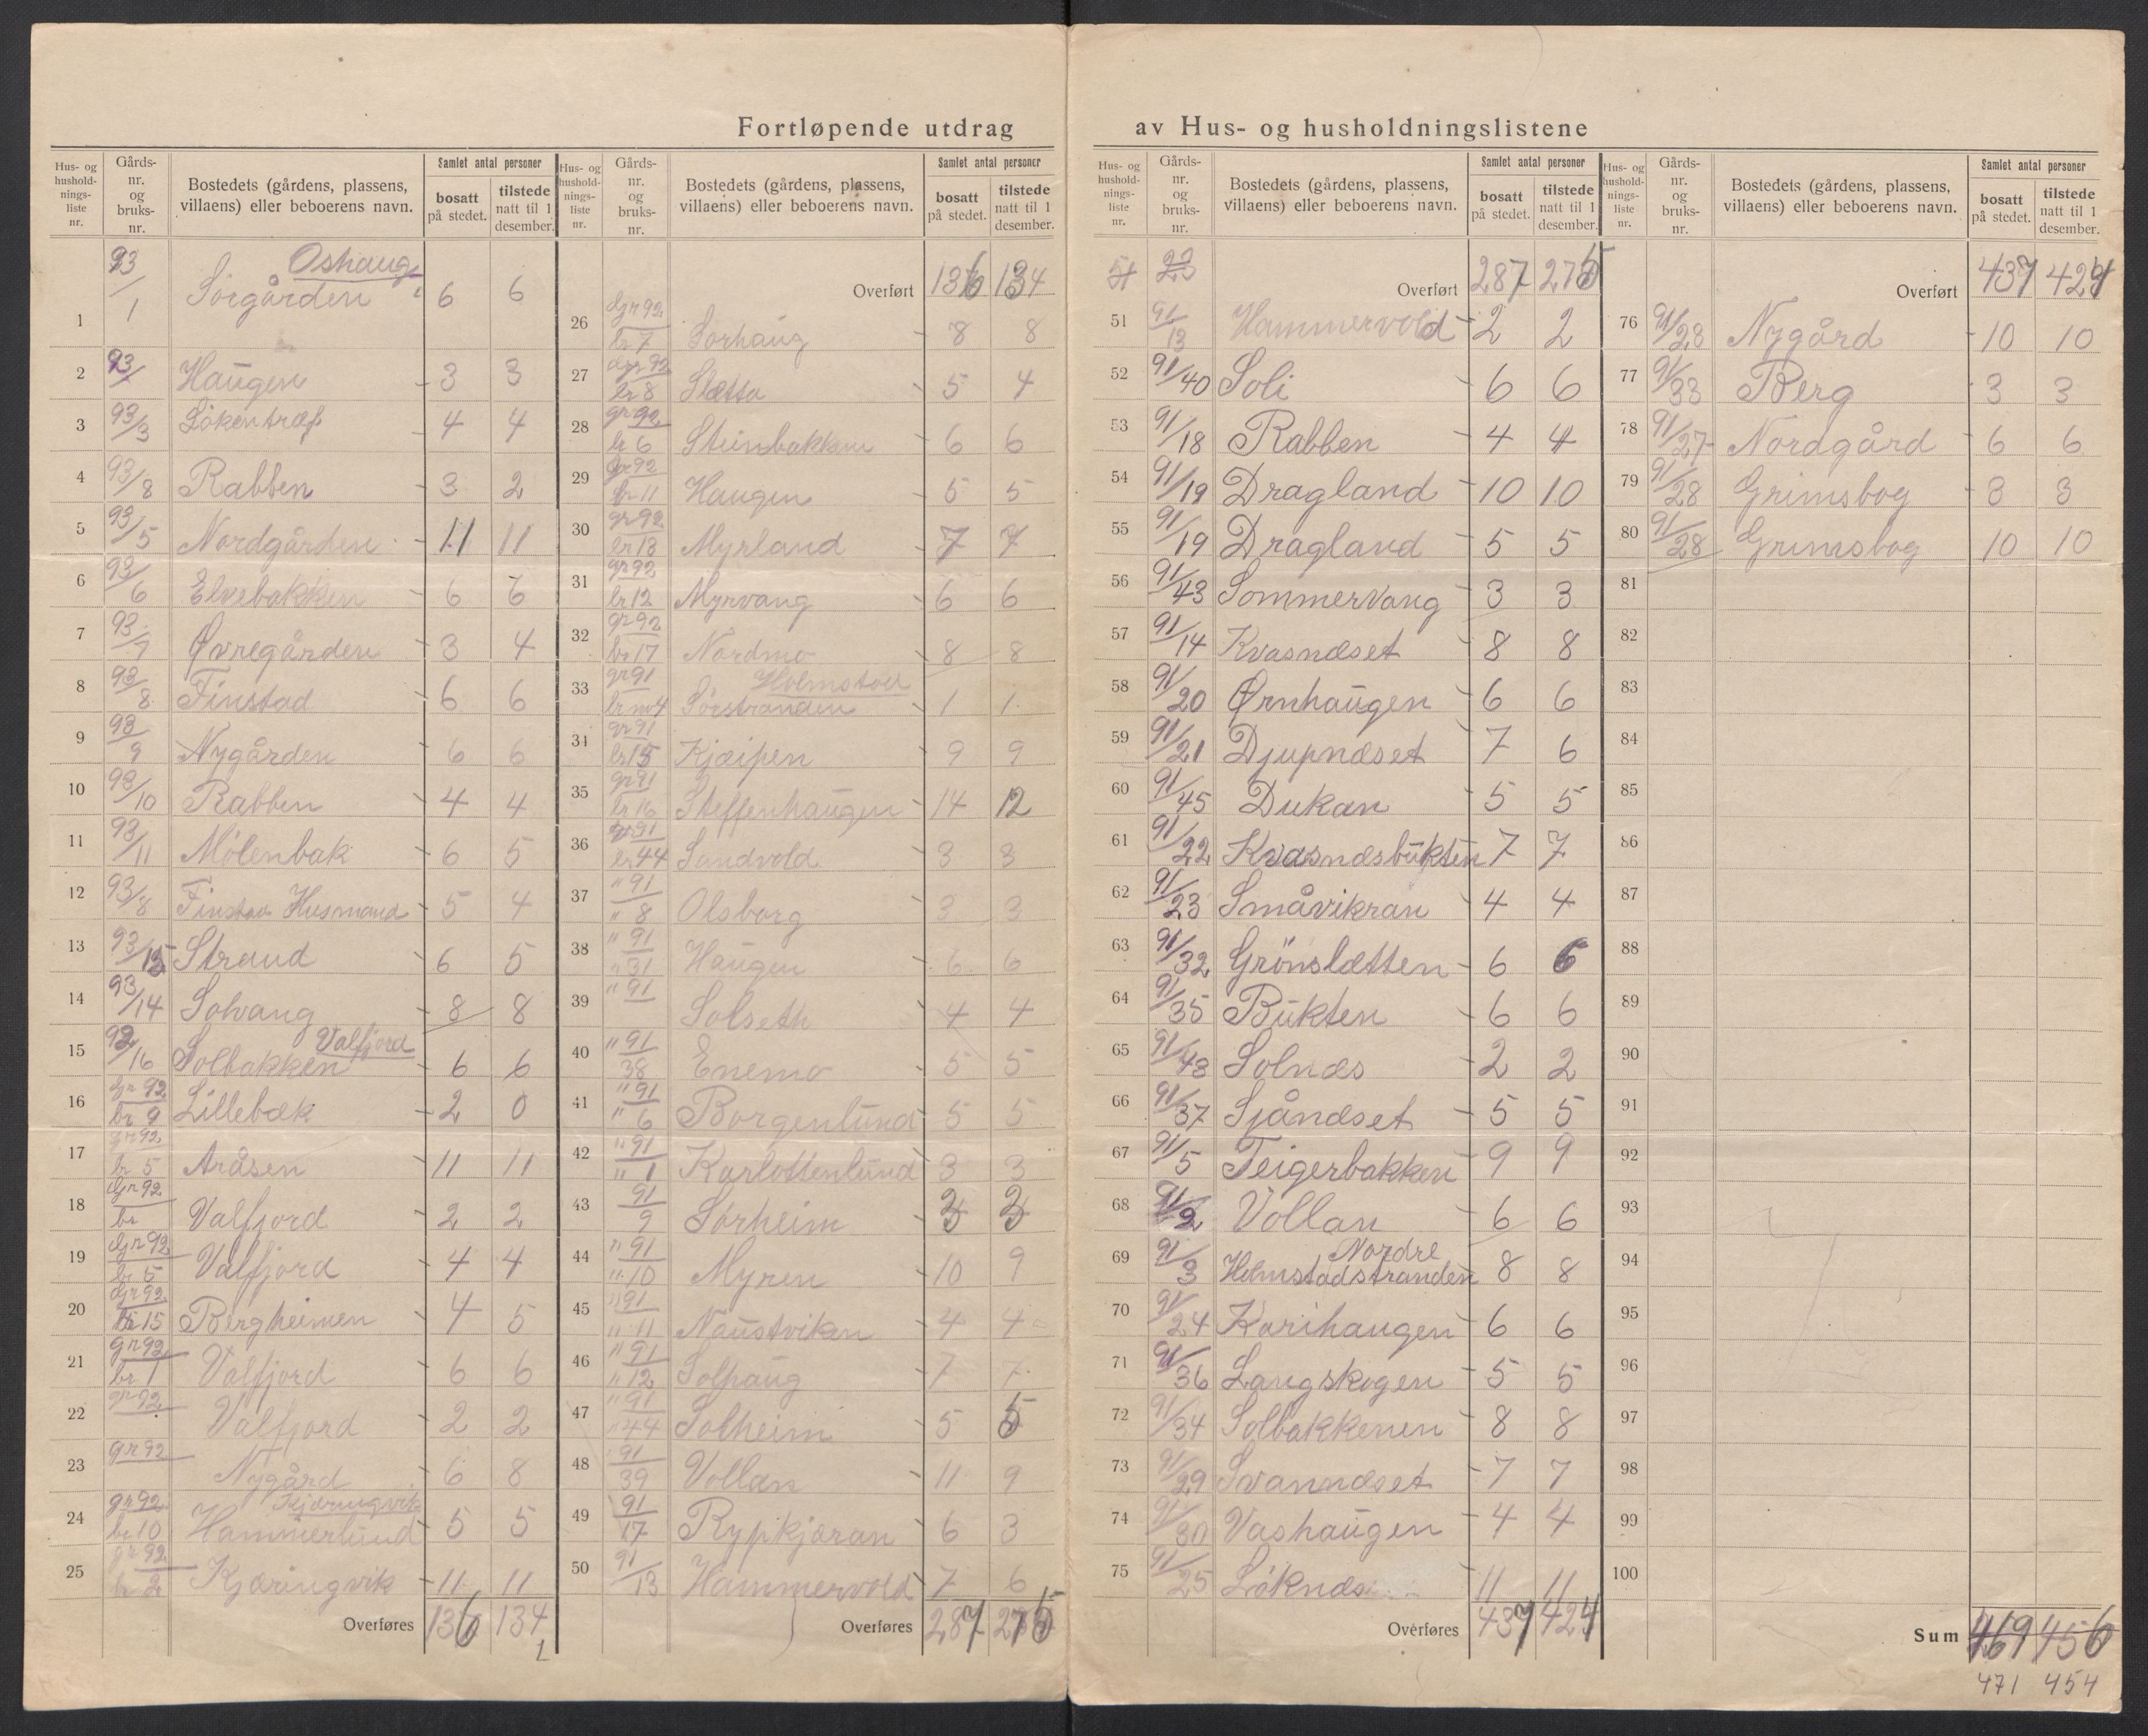 Fortløpende utdrag av Hus- og husholdningslistene
Hus- og husholdningsliste nr. Gårds-nr. og bruks-nr. Bostedets (gårdens, plassens, villaens) eller beboerens navn. Samlet antal personer bosatt på stedet. tilstede natt til 1 desember.
1 93/1 Oshaug Sørgården 6 6
2 93/ Haugen 3 3
3 93/3 Løkentræf 4 4
4 93/8 Rabben 3 2
5 93/5 Nordgården 11 11
6 93/6 Elvebakken 6 6
7 93/7 Øvregården 3 4
8 93/8 Finstad 6 6
9 93/9 Nygården 6 6
10 93/10 Rabben 4 4
11 93/11 Mølenbak 6 5
12 93/8 Finstad Husmand 5 4
13 93/15 Strand 6 5
14 93/14 Solvang 8 8
15 92/16 Valfjord Solbakken 6 6
16 Gr 92 br 9 Lillebæk 2 0
17 gr 92 br 5 Aråsen 11 11
18 Gr 92 br Valfjord 2 2
19 Gr 92 br 5 Valfjord 4 4
20 Gr 92 br 15 Bergheimen 4 5
21 gr 92 br 1 Valfjord 6 6
22 gr 92 Valfjord 2 2
23 gr 92 Nygård 6 8
24 gr 92 br 10 Kjæringvik Hammerlund 5 5
25 gr 92 br 2 Kjæringvik 11 11
Overføres 136 134
Hus- og husholdningsliste nr. Gårds-nr. og bruks-nr. Bostedets (gårdens, plassens, villaens) eller beboerens navn. Samlet antal personer bosatt på stedet. tilstede natt til 1 desember.
Overført 136 134
26 Gr 92 br 7 Sørhaug 8 8
27 gr 92 br 8 Sletta 5 4
28 gr 92 br 6 Steinbakken 6 6
29 gr 92 br 11 Haugen 5 5
30 gr 92 br 13 Myrland 7 7
31 gr 92 br 12 Myrvang 6 6
32 gr 92 br 17 Nordmo 8 8
33 gr 91 br 4 Holmstad Sørstranden 1 1
34 gr 91 br 15 Kjæipen 9 9
35 gr 91 br 16 Steffenhaugen 14 12
36 gr 91 br 44 Sandvold 3 3
37 " 91 " 8 Olsborg 3 3
38 " 91 " 31 Haugen 6 6
39 " 91 Solseth 4 4
40 " 91 38 Enemo 5 5
41 " 91 " 6 Borgenlund 5 5
42 " 91 " 1 Karlottenlund 3 3
43 91 9 Sørheim 3 3
44 " 91 " 10 Myren 10 9
45 " 91 " 11 Naustviken 4 4
46 " 91 " 12 Solhaug 7 7
47 " 91 " 44 Solheim 5 5
48 91 39 Vollan 11 9
49 91 17 Rypkjæran 6 3
50 91 13 Hammervold 7 6
Overføres 287 275
Hus- og husholdningsliste nr. Gårds-nr. og bruks-nr. Bostedets (gårdens, plassens, villaens) eller beboerens navn. Samlet antal personer bosatt på stedet. tilstede natt til 1 desember.
Overført 287 275
51 91/13 Hammervold 2 2
52 91/40 Soli 6 6
53 91/18 Rabben 4 4
54 91/19 Dragland 10 10
55 91/19 Dragland 5 5
56 91/43 Sommervang 3 3
57 91/14 Kvasnæset 8 8
58 91/20 Ørnhaugen 6 6
59 91/21 Djupnæset 7 6
60 91/45 Dukan 5 5
61 91/22 Kvasnæsbukten 7 7
62 91/23 Småvikran 4 4
63 91/32 Grönsletten 6 6
64 91/35 Bukten 6 6
65 91/48 Solnæs 2 2
66 91/37 Sjånæset 5 5
67 91/5 Teigerbakken 9 9
68 91/2 Vollan 6 6
69 91/3 Nordre Holmstadstranden 8 8
70 91/24 Karihaugen 6 6
71 91/36 Langskogen 5 5
72 91/34 Solbakkenen 8 8
73 91/29 Svannæset 7 7
74 91/30 Vashaugen 4 4
75 91/25 Løknæs 11 11
Overføres 437 424
Hus- og husholdningsliste nr. Gårds-nr. og bruks-nr. Bostedets (gårdens, plassens, villaens) eller beboerens navn. Samlet antal personer bosatt på stedet. tilstede natt til 1 desember.
Overført 437 424
76 91/28 Nygård 10 10
77 91/33 Berg 3 3
78 91/27 Nordgård 6 6
79 91/28 Grimsbog 3 3
80 91/28 Grimsbog 10 10
81
82
83
84
85
86
87
88
89
90
91
92
93
94
95
96
97
98
99
100
Sum 469 456
471 454